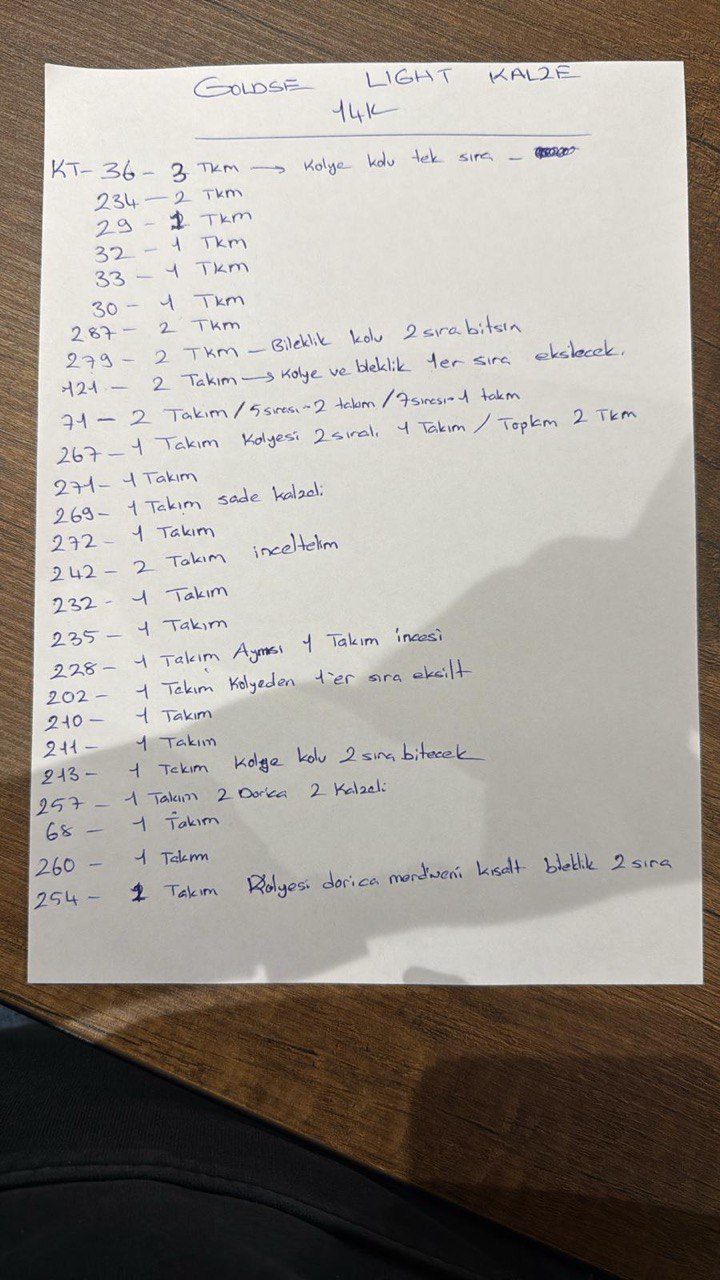 GOLDSE LIGHT KALZE
14K
KT- 36 - 3 TKM → Kolye kolu tek sıra -
234 - 2 TKM
29 - 1 TKM
32 - 1 TKM
33 - 1 TKM
30 - 1 TKM
287 - 2 TKM
279 - 2 TKM - Bileklik kolu 2 sıra bitsin
121 - 2 Takım → Kolye ve bleklik 1er sıra eksilecek.
71 - 2 Takım / 5 sırası - 2 takım / 7 sırası - 1 takım
267 - 1 Takım Kolyesi 2 sıralı 1 Takım / Toplam 2 TKM
271 - 1 Takım
269 - 1 Takım sade kalzeli
272 - 1 Takım
242 - 2 Takım inceltelim
232 - 1 Takım
235 - 1 Takım
228 - 1 Takım Aynısı 1 Takım incesi
202 - 1 Takım Kolyeden 1'er sıra eksilt
210 - 1 Takım
211 - 1 Takım
213 - 1 Takım Kolye kolu 2 sıra bitecek
257 - 1 Takım 2 Dorica 2 Kalzeli
68 - 1 Takım
260 - 1 Takım
254 - 1 Takım Kolyesi dorica merdiveni kısalt bleklik 2 sıra